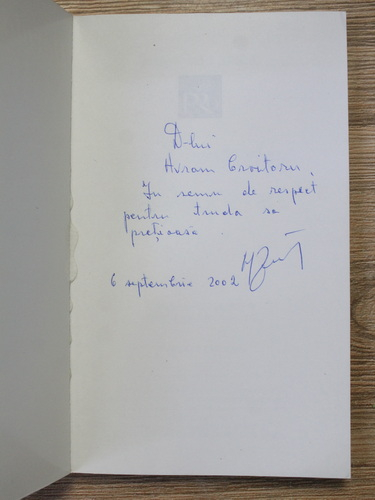 D-lui
Avram Croitoru,
În semn de respect
pentru truda sa
prețioasă.
6 septembrie 2002